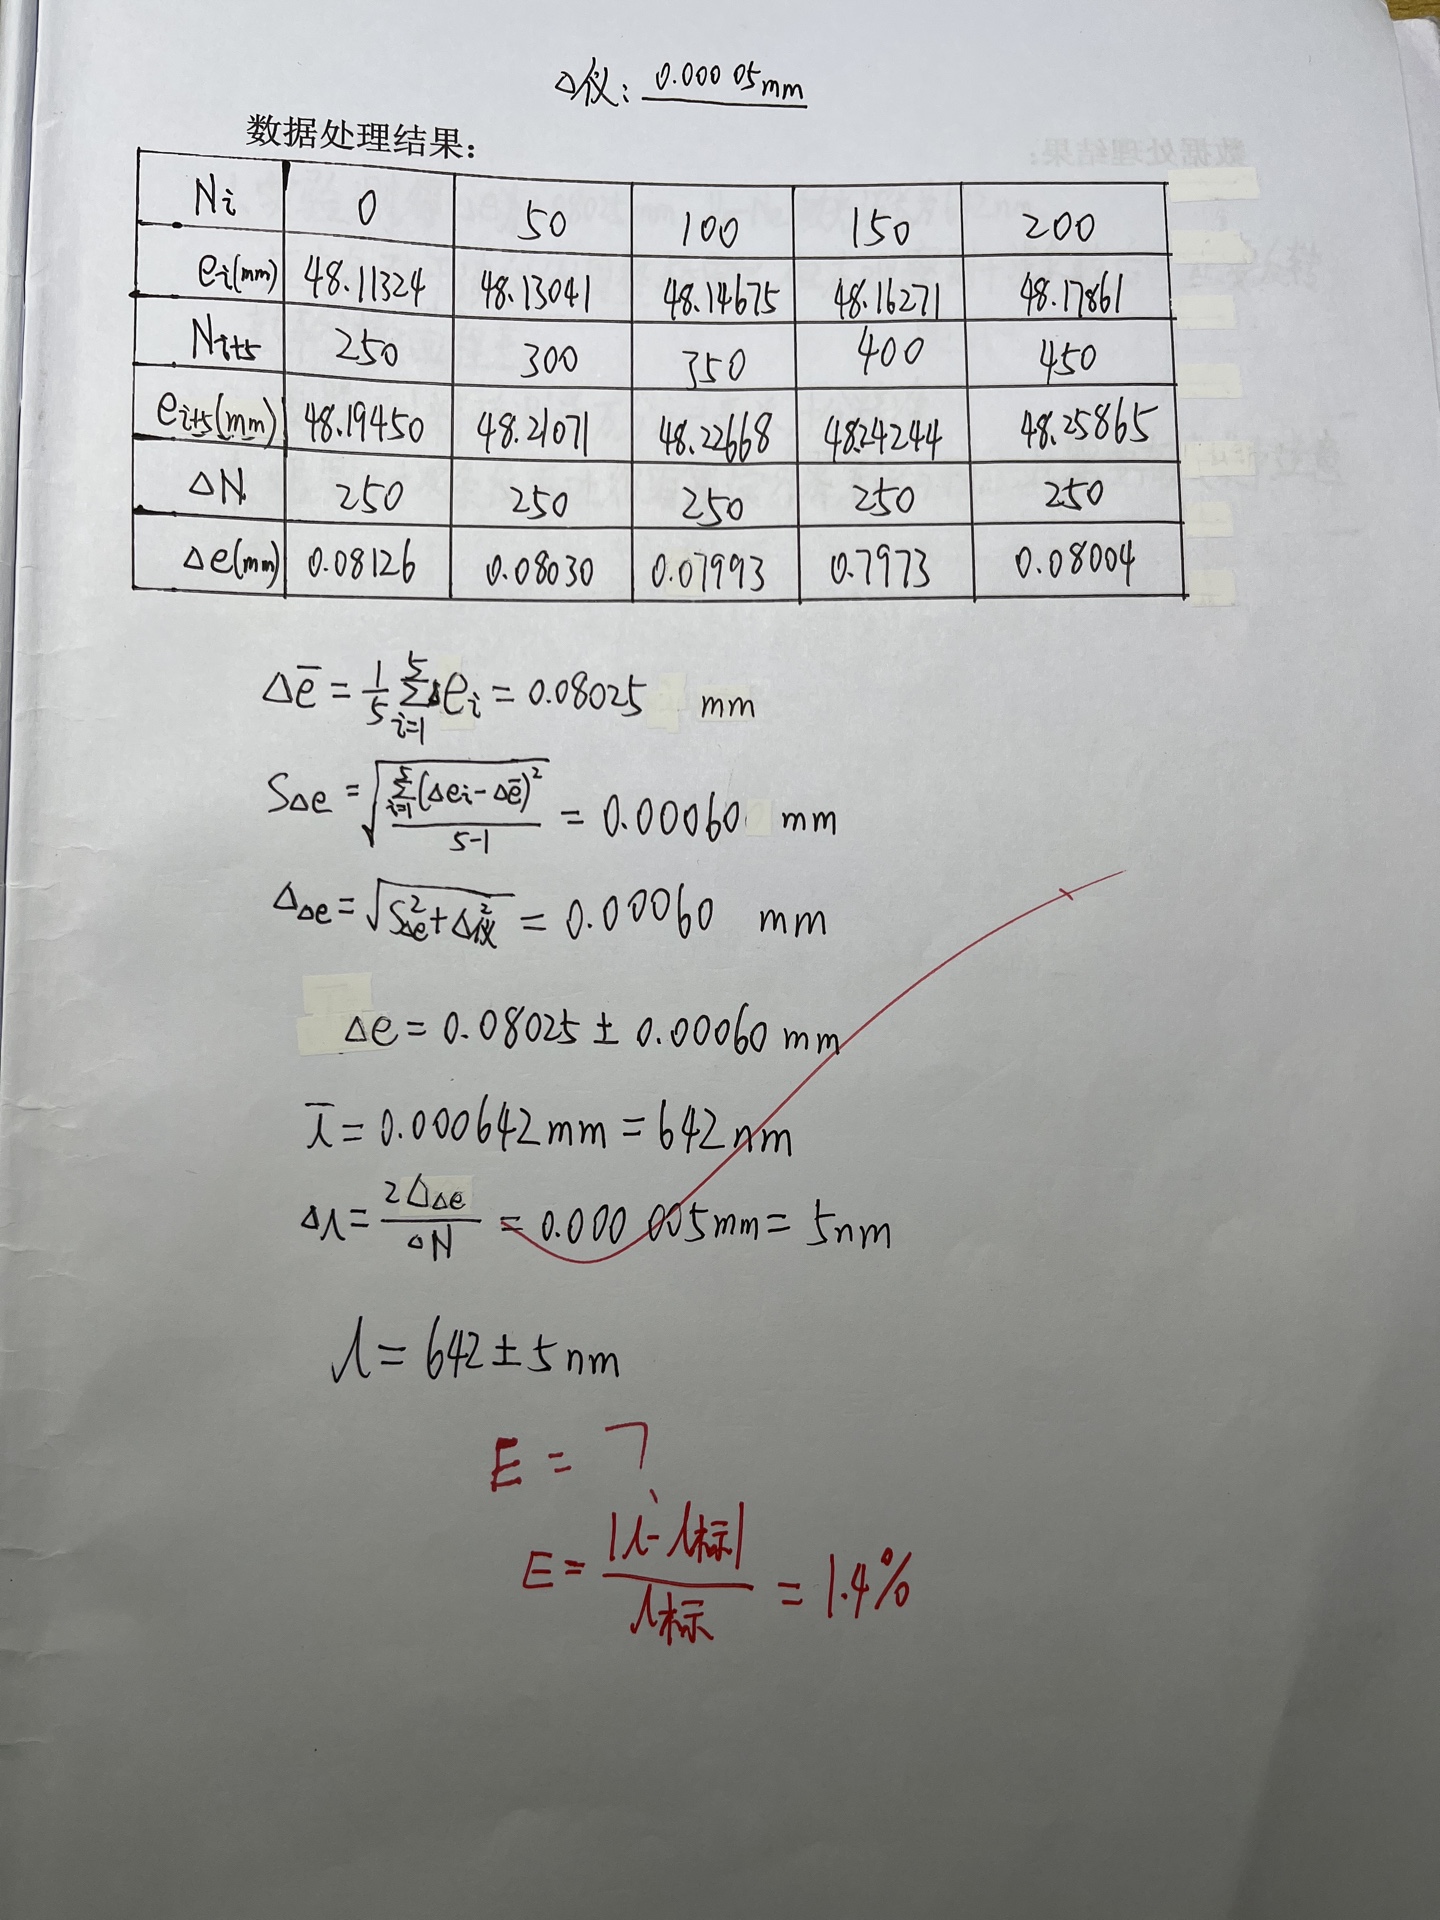 Δ仪: 0.00005mm
数据处理结果:
Ni 0 50 100 150 200
ei(mm) 48.11324 48.13041 48.14675 48.16271 48.17861
Ni+5 250 300 350 400 450
ei+5(mm) 48.19450 48.21071 48.22668 4824244 48.25865
ΔN 250 250 250 250 250
Δe(mm) 0.08126 0.08030 0.07993 0.7973 0.08004
Δē = 1/5 Σ_{i=1}^{5} Δei = 0.08025 mm
SΔe = √(Σ_{i=1}^{5}(Δei-Δē)²/(5-1)) = 0.00060 mm
ΔΔe = √(S²Δe+Δ²仪) = 0.00060 mm
Δe = 0.08025 ± 0.00060 mm
λ̄ = 0.000642mm = 642nm
Δλ = 2ΔΔe/ΔN = 0.000005mm = 5nm
λ = 642 ± 5nm
E =
E = |λ-λ标|/λ标 = 1.4%